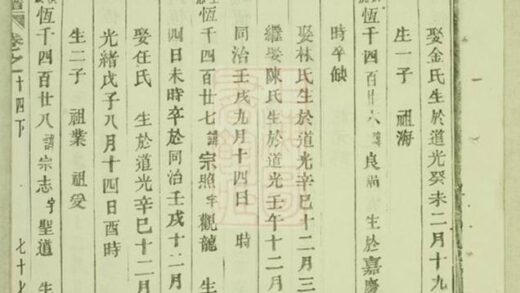 娶金氏生於道光癸未二月十九
生一子 祖海
恆千四百廿六 諱良 生於嘉慶
時卒缺
娶林氏生於道光辛巳十二月三
繼娶陳氏生於道光壬午十二月
同治壬戌九月十四日 時
恆千四百廿七 諱宗照 字觀龍 生
四日未時卒於同治壬戌十二月
娶任氏 生於道光辛巳十二月
光緒戊子八月十四日酉時
生二子 祖業 祖愛
恆千四百廿八 諱宗志 字聖道 生
卷之十四下 七十七